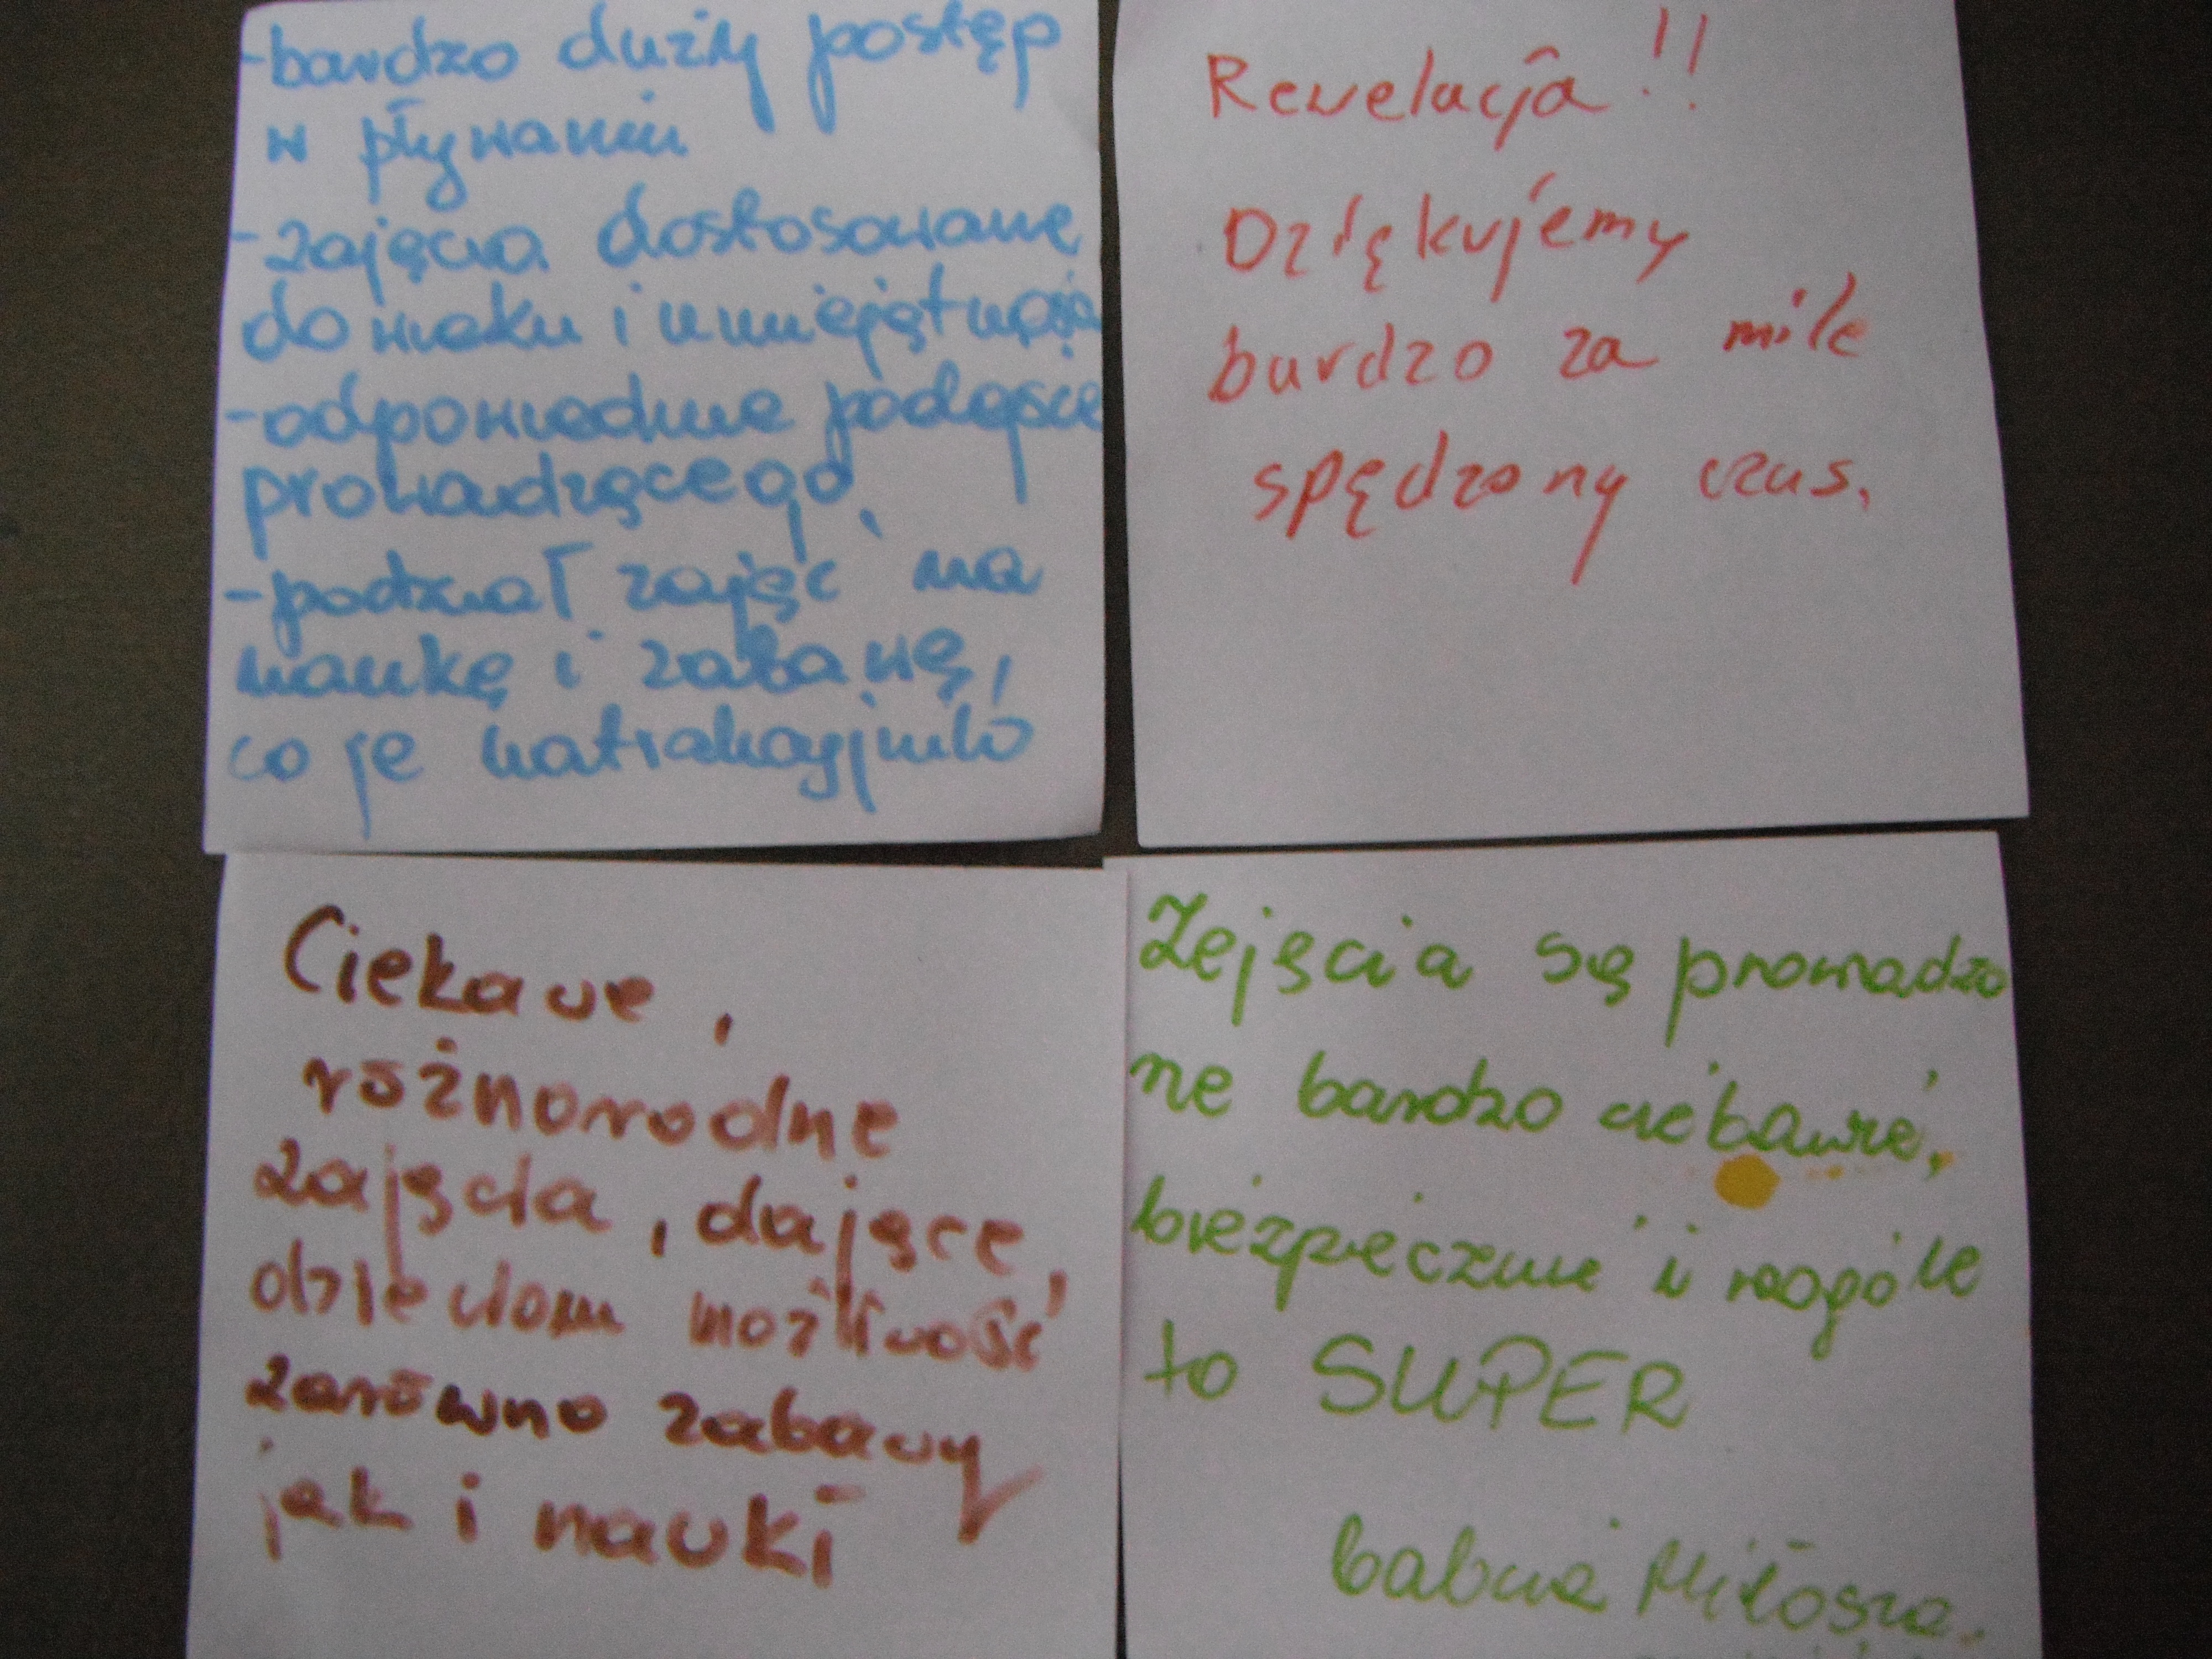 -bardzo duży postęp
w pływaniu
-zajęcia dostosowane
do wieku i umiejętności
-odpowiednie podejście
prowadzącego,
-podział zajęć na
naukę i zabawę,
co je uatrakcyjniło
Rewelacja!!
Dziękujemy
bardzo za miłe
spędzony czas.
Ciekawe,
różnorodne
zajęcia, dające
dzieciom możliwość
zarówno zabawy
jak i nauki
Zajęcia są prowadzo
ne bardzo ciekawie,
bezpiecznie i wogóle
to SUPER
babcia Miłosza.